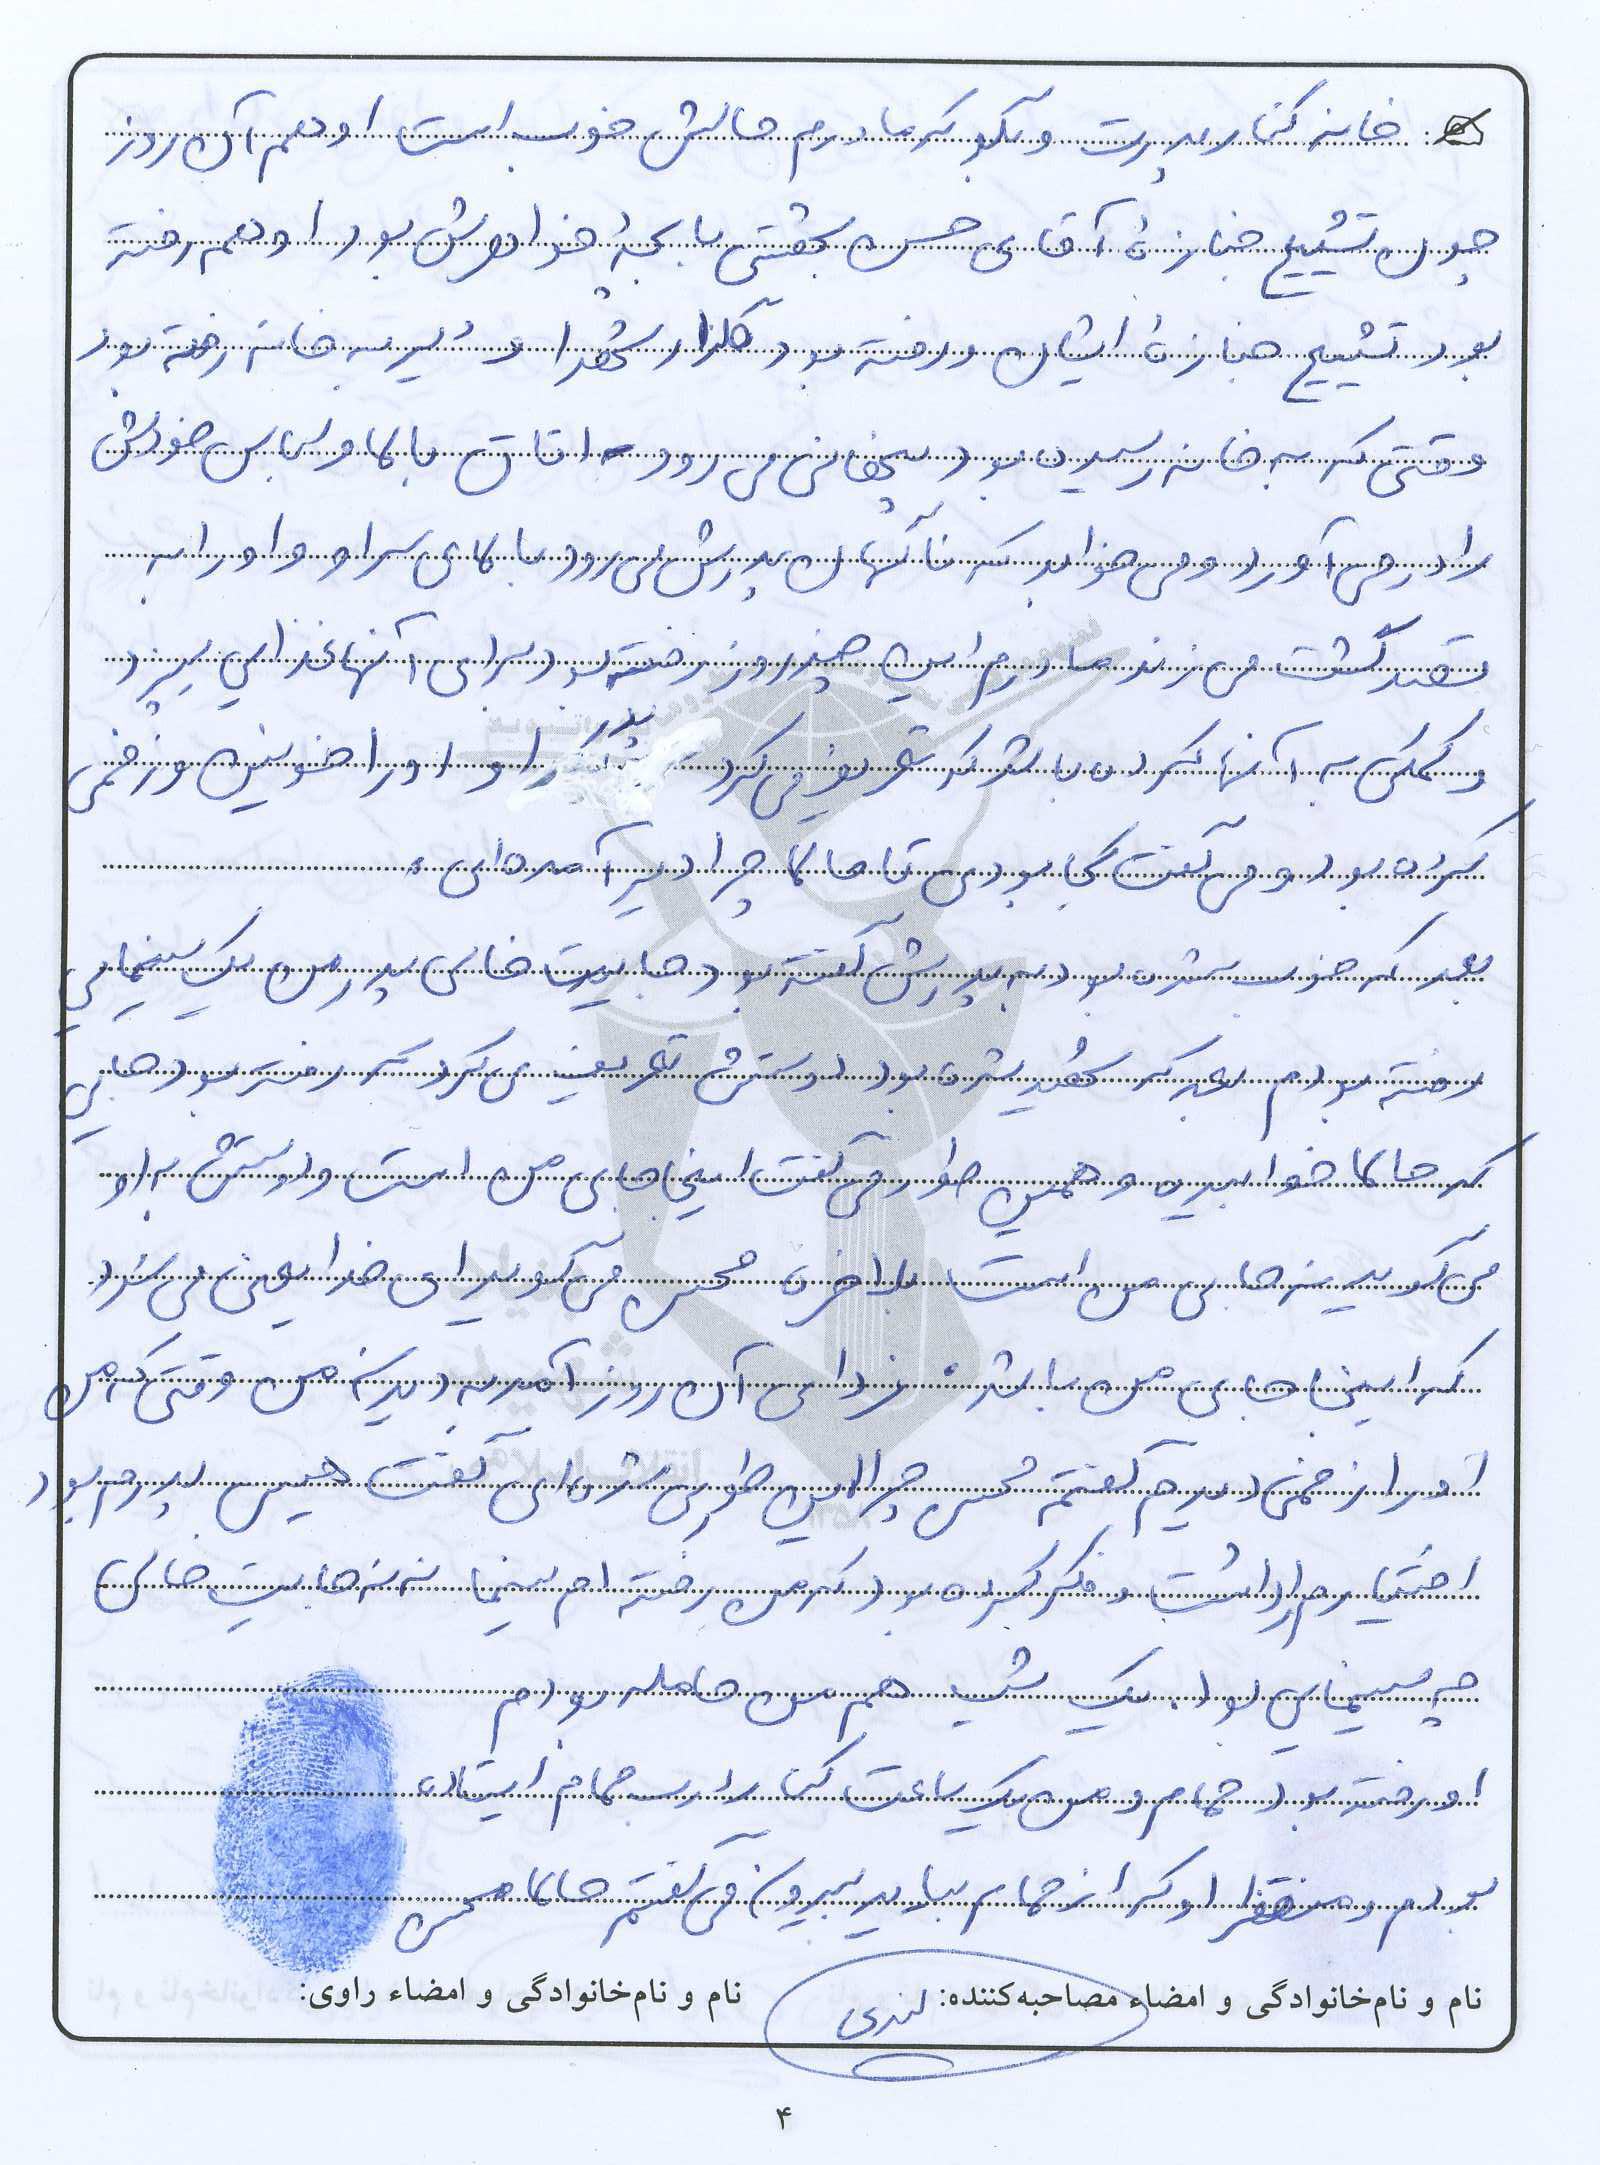 خانه کنار پدرت و بگو که مادرم حالش خوب است او هم آن روز
چون تشییع جنازهٔ آقای حسن بهشتی با بچهٔ خواهرش بود او هم رفته
بود تشییع جنازهٔ ایشان و رفته بود گلزار شهدا و دیر به خانه رفته بود
وقتی که به خانه رسیده بود پنهانی می رود به اتاق بالا و لباس خودش
را در می آورد و می خوابد که ناگهان پدرش می رود بالای سر او و او را به
قصد کشت می زند مادرم این چند روز رفته بود برای آنها غذایی بپزد
و کمکی به آنها کرده باشد که تعریف می کرد پدر او او را خونین و زخمی
کرده بود و می گفت کجا بودی تا حالا چرا دیر آمده ای.
بعد که خوب شده بود به پدرش گفته بود جایت خالی پدر من یک سینمایی
رفته بودم بعد که شهید شده بود دوستش تعریف می کرد که رفته بود جایی
که حالا خوابیده و همین طور می گفت اینجا جای من است و دوستش به او
می گوید نه جای من است بلاخره محسن می گوید ای خدا یعنی می شود
که اینجا جای من باشد. فردای آن روز آمد به دیدن من وقتی که من
او را زخمی دیدم گفتم محسن چرا این طوری شده ای گفت هیس پدرم بود
اختیارم را داشت و فکر کرده بود که من رفته ام سینما ننه جایت خالی
چه سینمایی بود. یک شب هم من حامله بودم
او رفته بود حمام و من یک ساعت کنار درب حمام ایستاده
بودم و منتظر او که از حمام بیاید بیرون می گفتم حالا محسن
نام و نام‌خانوادگی و امضاء مصاحبه‌کننده:
نام و نام‌خانوادگی و امضاء راوی:
۴